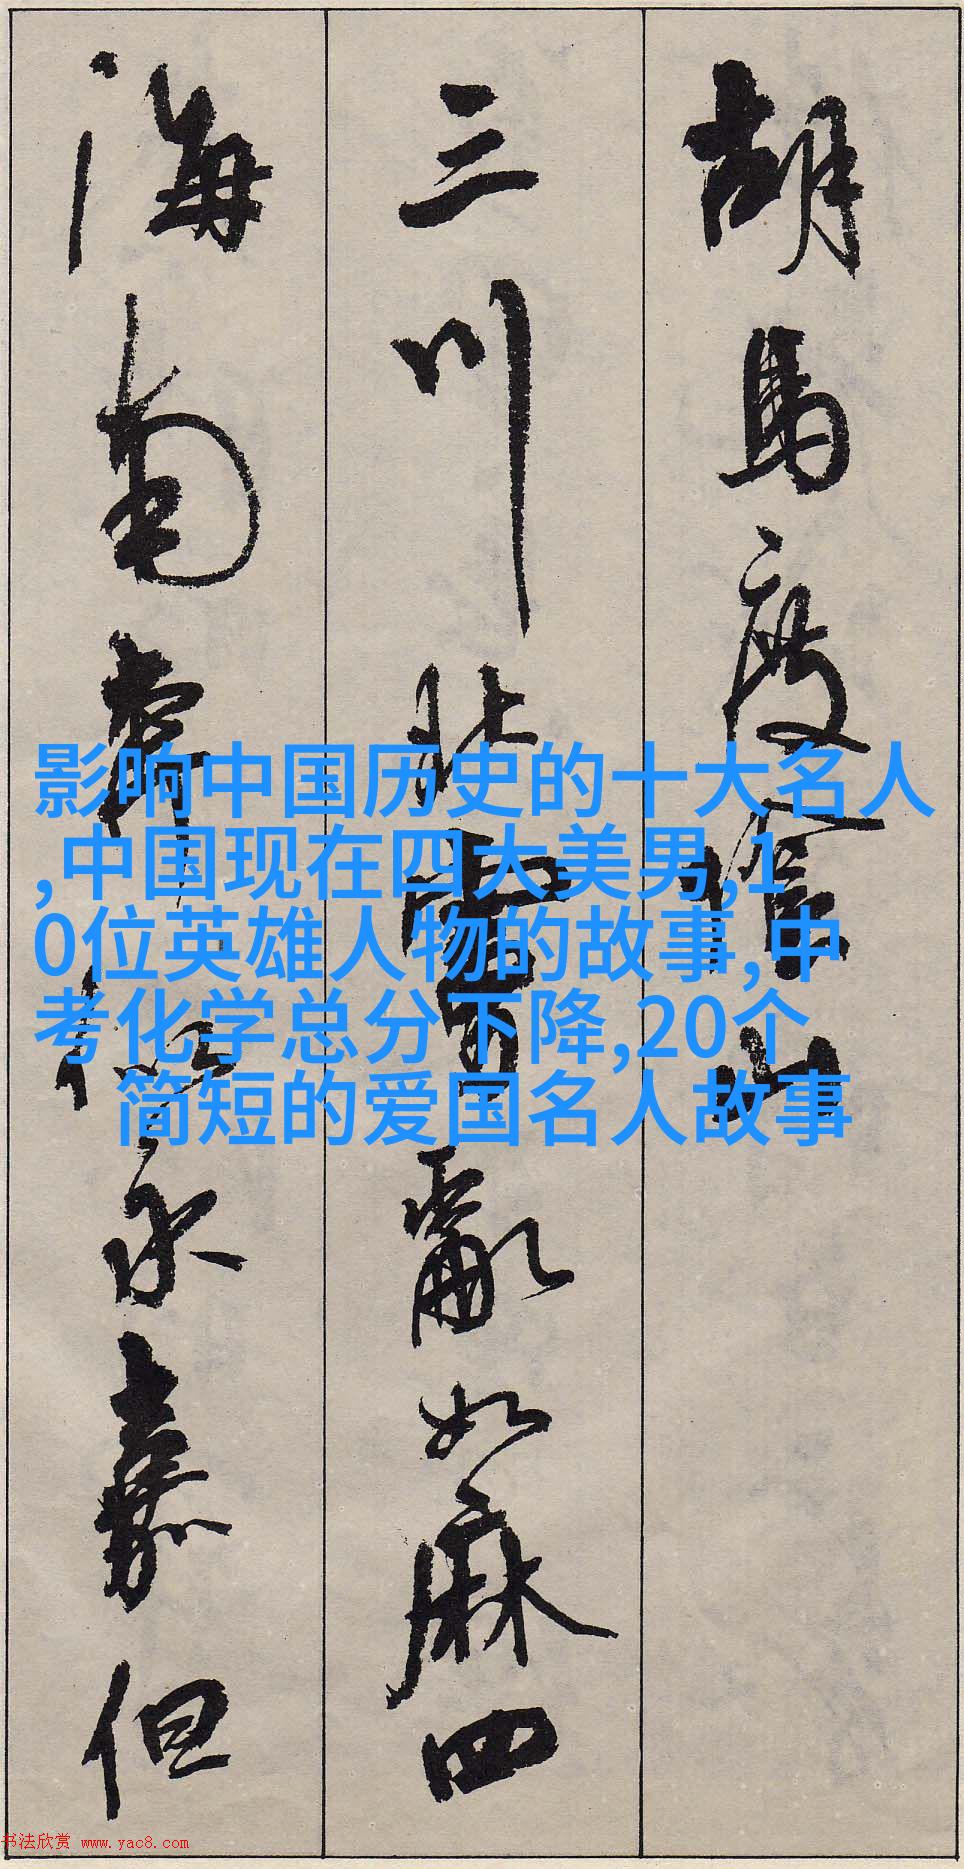 胡馬度陰山
三川北虜亂如麻四
海南奔似永嘉但
影响中国历史的十大名人
,中国现在四大美男,1
0位英雄人物的故事,中
考化学总分下降,20个
简短的爱国名人故事
书法欣赏 www.yac8.com